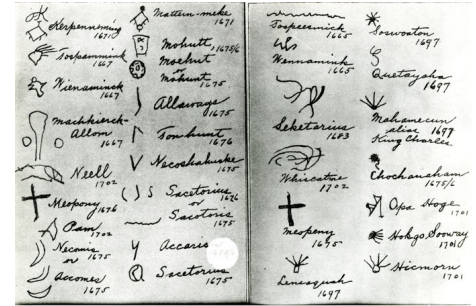 Kerpenneming
1671
Tospaminck
1667
Wienaminck
1667
Machkierck-
Allom
1667
Neell
1702
Meopony
1676
Pam
1702
Neconis
or 1675
Accomes
1675
Mattern-meke
1671
Mohutt, 1675/6
Moehut
or
Mohunt
1675
Allaways
1675
Tomhunt
1676
Necoshahuske
1675
Sacetorius
or 1676
Sacetoris
1675
Accaris
Sacetorius
1675
Tospeesmick
1665
Wennamink
1665
Seketarius
1683
Whiscatne
1702
Meopeny
1675
Leneaquah
1697
Soswoaton
1697
Quetayaha
1697
Mahamecun
alias 1697
King Charles
Chochanaham
1675/6
Opa Hoge
1701
Hokgo, Sooway
1701
Hicmorn
1701